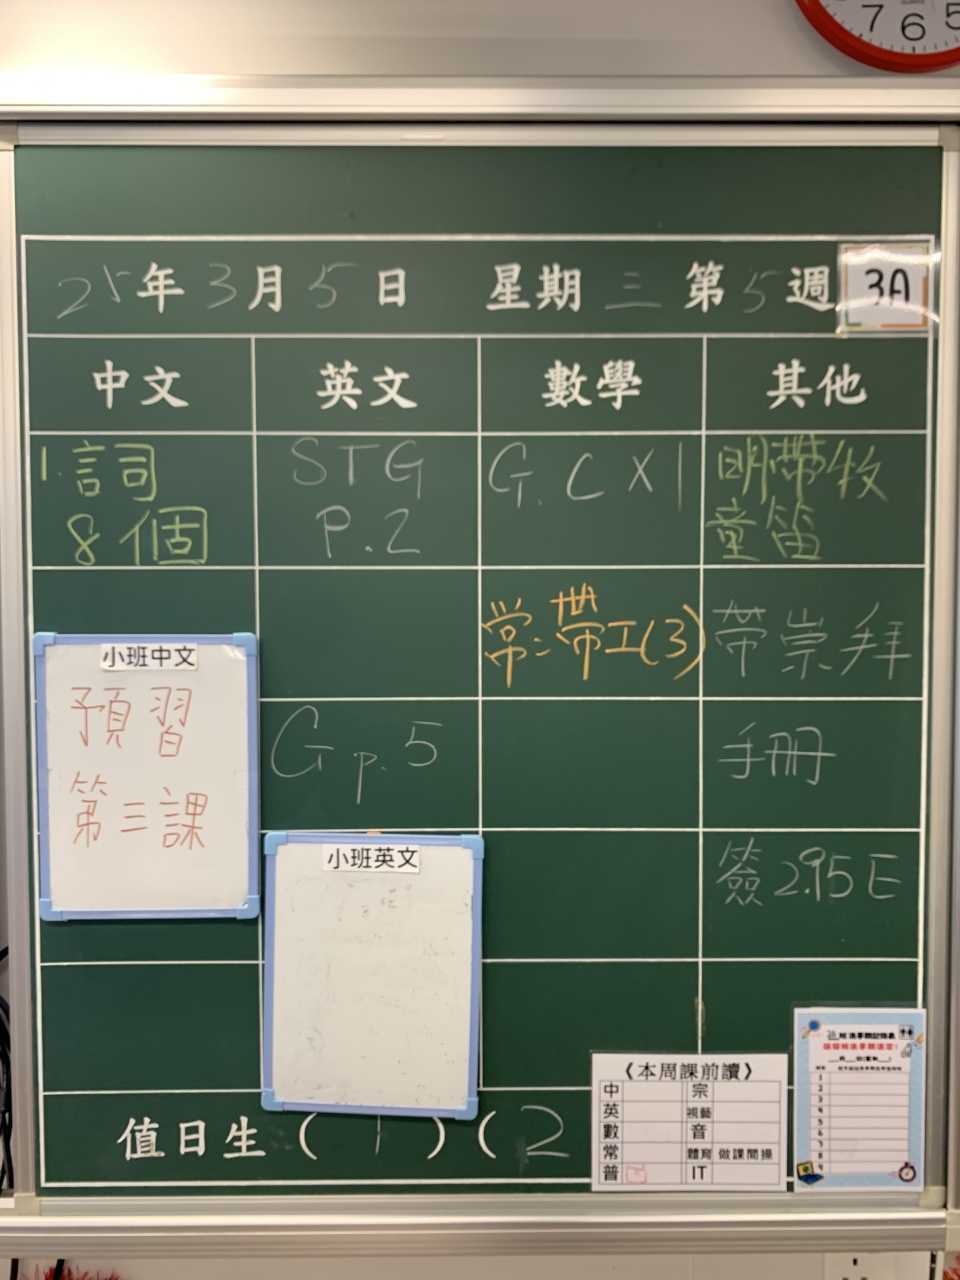 7 6 5
25年3月5日 星期三 第5週 3A
中文 英文 數學 其他
1.詞
8個
STG
P.2
G.C X1
明帶牧
童笛
常:帶工(3)
帶崇拜
手冊
小班中文
預習
第三課
G p.5
簽2.95E
小班英文
《本周課前讀》
中 宗
英 視藝
數 音
常 體育 做課間操
普 IT
1
2
3
4
5
6
7
8
9
值日生(1)(2